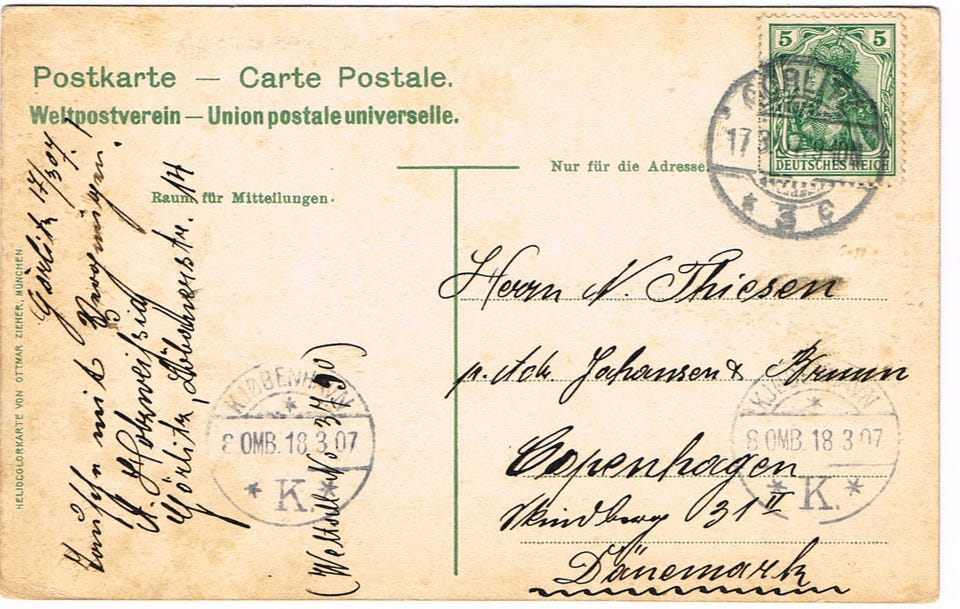 Postkarte — Carte Postale.
Weltpostverein — Union postale universelle.
Nur für die Adresse.
Raum für Mitteilungen.
HELIOCOLORKARTE VON OTTMAR ZIEHER, MÜNCHEN
5 5
DEUTSCHES REICH
GÖRLITZ
17 3
* 3 c
Görlitz 17/3 07.
Tausche mit Vergnügen!
A. Hoberweißig
Görlitz, Löbauerstr. 14
(Weltall No 3790)
KJØBENHAVN
8 OMB. 18 3 07
* K. *
Herrn N. Thiesen
p. Adr. Johansen & Bruun
Copenhagen
31 II
Dänemark
KJØBENHAVN
8 OMB. 18 3 07
* K. *